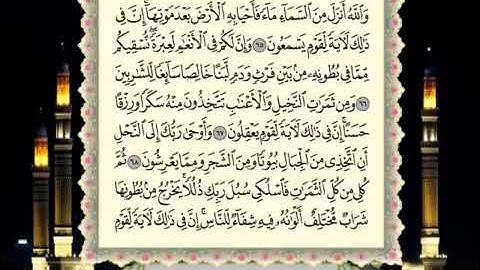 وَٱللَّهُ أَنزَلَ مِنَ ٱلسَّمَآءِ مَآءً فَأَحْيَا بِهِ ٱلْأَرْضَ بَعْدَ مَوْتِهَآ إِنَّ فِى
ذَٰلِكَ لَءَايَةً لِّقَوْمٍ يَسْمَعُونَ ٦٥ وَإِنَّ لَكُمْ فِى ٱلْأَنْعَٰمِ لَعِبْرَةً نُّسْقِيكُم
مِّمَّا فِى بُطُونِهِۦ مِنۢ بَيْنِ فَرْثٍ وَدَمٍ لَّبَنًا خَالِصًا سَآئِغًا لِّلشَّٰرِبِينَ
٦٦ وَمِن ثَمَرَٰتِ ٱلنَّخِيلِ وَٱلْأَعْنَٰبِ تَتَّخِذُونَ مِنْهُ سَكَرًا وَرِزْقًا
حَسَنًا إِنَّ فِى ذَٰلِكَ لَءَايَةً لِّقَوْمٍ يَعْقِلُونَ ٦٧ وَأَوْحَىٰ رَبُّكَ إِلَى ٱلنَّحْلِ
أَنِ ٱتَّخِذِى مِنَ ٱلْجِبَالِ بُيُوتًا وَمِنَ ٱلشَّجَرِ وَمِمَّا يَعْرِشُونَ ٦٨ ثُمَّ
كُلِى مِن كُلِّ ٱلثَّمَرَٰتِ فَٱسْلُكِى سُبُلَ رَبِّكِ ذُلُلًا يَخْرُجُ مِنۢ بُطُونِهَا
شَرَابٌ مُّخْتَلِفٌ أَلْوَٰنُهُۥ فِيهِ شِفَآءٌ لِّلنَّاسِ إِنَّ فِى ذَٰلِكَ لَءَايَةً لِّقَوْمٍ